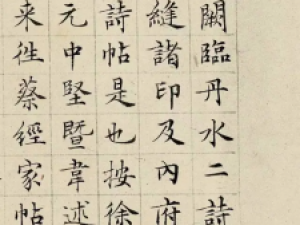 闕臨丹水二詩
縫諸印及內府
詩帖是也按徐
元中堅暨韋述
来徃蔡經家帖